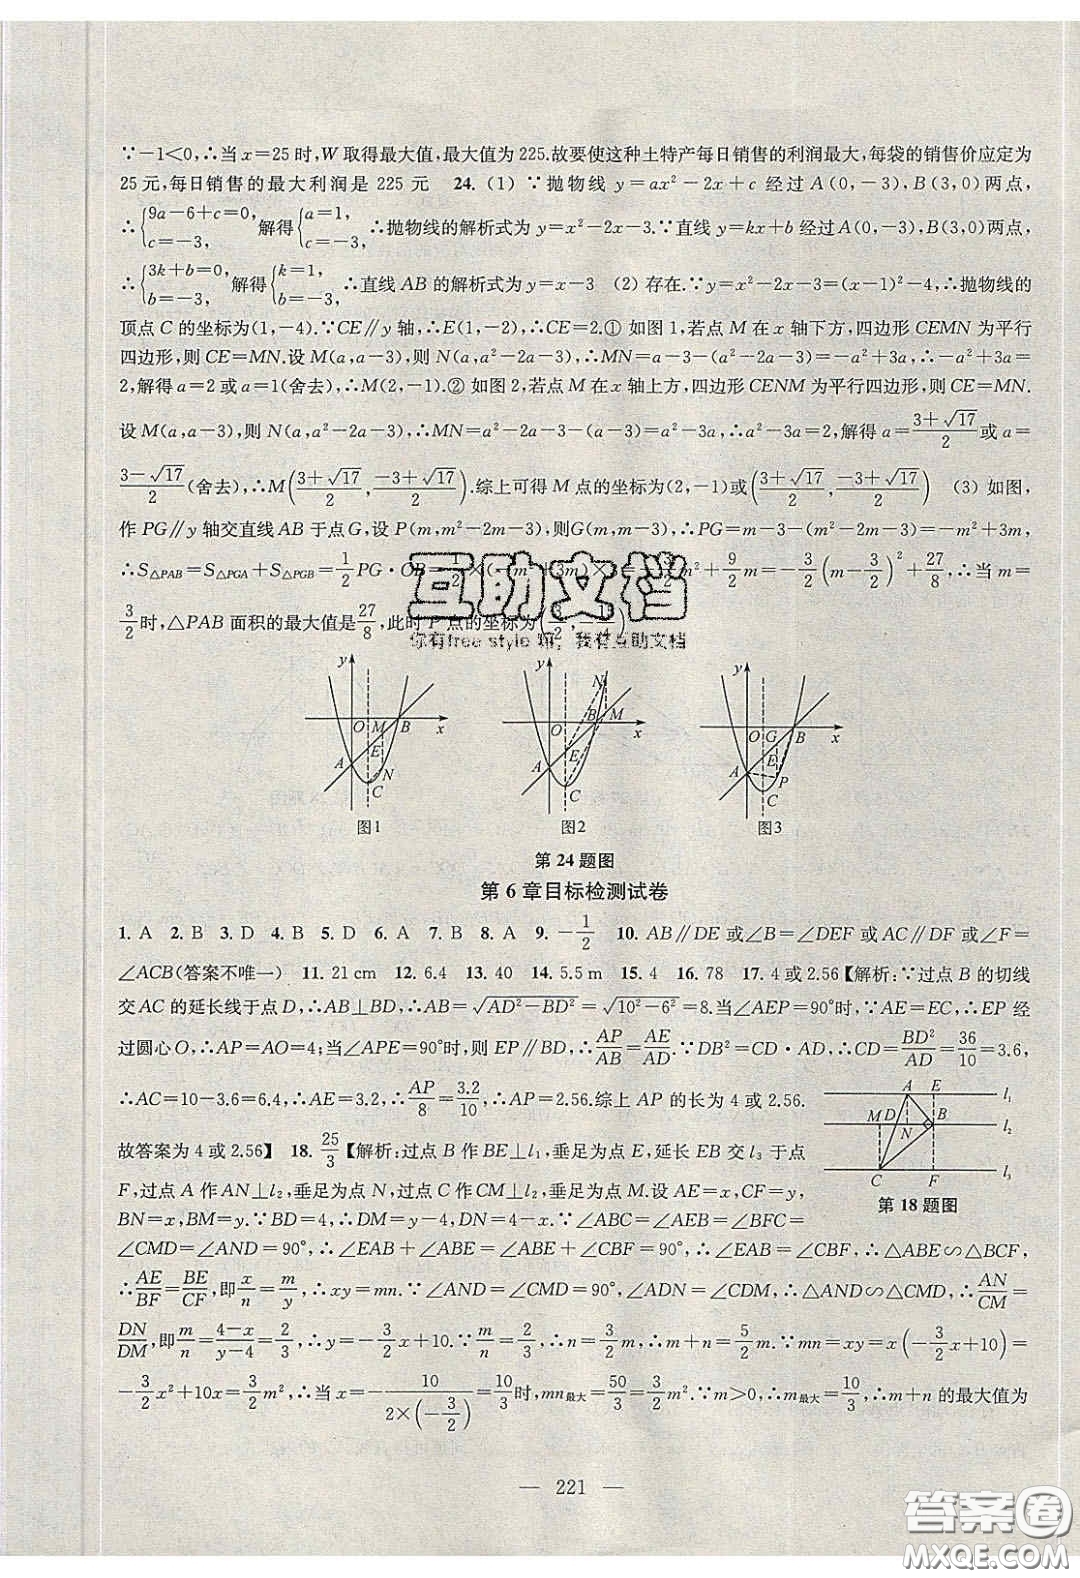 ∵−1<0,∴当 x=25 时,W 取得最大值,最大值为 225.故要使这种土特产每日销售的利润最大,每袋的销售价应定为
25 元,每日销售的最大利润是 225 元　24.（1）∵抛物线 y=ax²−2x+c 经过 A(0,−3),B(3,0)两点,
∴{9a−6+c=0, c=−3, 解得{a=1, c=−3, ∴抛物线的解析式为 y=x²−2x−3.∵直线 y=kx+b 经过 A(0,−3),B(3,0)两点,
∴{3k+b=0, b=−3, 解得{k=1, b=−3, ∴直线 AB 的解析式为 y=x−3　（2）存在.∵y=x²−2x−3=(x−1)²−4,∴抛物线的
顶点 C 的坐标为(1,−4).∵CE∥y 轴,∴E(1,−2),∴CE=2.① 如图 1,若点 M 在 x 轴下方,四边形 CEMN 为平行
四边形,则 CE=MN.设 M(a,a−3),则 N(a,a²−2a−3),∴MN=a−3−(a²−2a−3)=−a²+3a,∴−a²+3a=
2,解得 a=2 或 a=1(舍去),∴M(2,−1).② 如图 2,若点 M 在 x 轴上方,四边形 CENM 为平行四边形,则 CE=MN.
设 M(a,a−3),则 N(a,a²−2a−3),∴MN=a²−2a−3−(a−3)=a²−3a,∴a²−3a=2,解得 a=(3+√17)/2 或 a=
(3−√17)/2 (舍去),∴M((3+√17)/2,(−3+√17)/2).综上可得 M 点的坐标为(2,−1)或((3+√17)/2,(−3+√17)/2)　（3）如图,
作 PG∥y 轴交直线 AB 于点 G,设 P(m,m²−2m−3),则G(m,m−3),∴PG=m−3−(m²−2m−3)=−m²+3m,
∴S△PAB=S△PGA+S△PGB=1/2 PG·OB=1/2×(−m²+3m)×3=−3/2 m²+9/2 m=−3/2(m−3/2)²+27/8,∴当 m=
3/2 时,△PAB 面积的最大值是 27/8,此时 P 点的坐标为
互助文档
你有free style 嘛，我有互助文档
y O M B x A E N C
y N O B M x E A C
y O G B x E A P C
图1　图2　图3
第 24 题图
第 6 章目标检测试卷
1. A　2. B　3. D　4. B　5. D　6. A　7. B　8. A　9. −1/2　10. AB∥DE 或∠B=∠DEF 或 AC∥DF 或∠F=
∠ACB(答案不唯一)　11. 21 cm　12. 6.4　13. 40　14. 5.5 m　15. 4　16. 78　17. 4 或 2.56【解析:∵过点 B 的切线
交 AC 的延长线于点 D,∴AB⊥BD,∴AB=√(AD²−BD²)=√(10²−6²)=8.当∠AEP=90°时,∵AE=EC,∴EP 经
过圆心 O,∴AP=AO=4;当∠APE=90°时,则 EP∥BD,∴AP/AB=AE/AD.∵DB²=CD·AD,∴CD=BD²/AD=36/10=3.6,
∴AC=10−3.6=6.4,∴AE=3.2,∴AP/8=3.2/10,∴AP=2.56.综上 AP 的长为 4 或 2.56.
故答案为 4 或 2.56】　18. 25/3【解析:过点 B 作 BE⊥l₁,垂足为点 E,延长 EB 交 l₃ 于点
F,过点 A 作 AN⊥l₂,垂足为点 N,过点 C 作 CM⊥l₂,垂足为点 M.设 AE=x,CF=y,
BN=x,BM=y.∵BD=4,∴DM=y−4,DN=4−x.∵∠ABC=∠AEB=∠BFC=
∠CMD=∠AND=90°,∴∠EAB+∠ABE=∠ABE+∠CBF=90°,∴∠EAB=∠CBF,∴△ABE∽△BCF,
∴AE/BF=BE/CF,即 x/n=m/y,∴xy=mn.∵∠ADN=∠CDM,∠AND=∠CMD=90°,∴△AND∽△CMD,∴AN/CM=
DN/DM,即 m/n=(4−x)/(y−4)=2/3,∴y=−3/2 x+10.∵m/n=2/3,∴n=3/2 m,∴m+n=5/2 m.∵mn=xy=x(−3/2 x+10)=
−3/2 x²+10x=3/2 m²,∴当 x=−10/(2×(−3/2))=10/3 时,mn最大=50/3=3/2 m².∵m>0,∴m最大=10/3,∴m+n 的最大值为
A E l₁
M D N B l₂
C F l₃
第 18 题图
— 221 —
答案圈
MXQE.COM